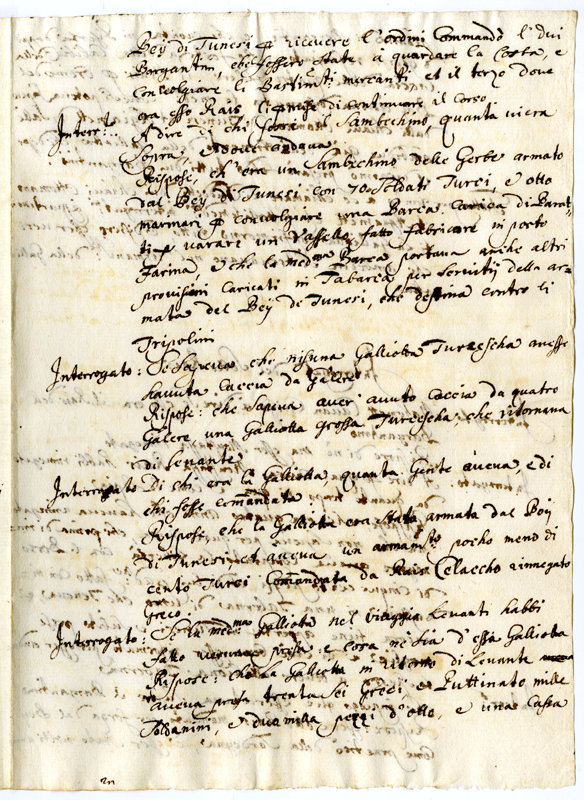 Bey di Tunesi p ricevere l'ordini Commandò li dui
Bargantini, che stessero state à guardare la Costa, e
convogliare li Bastimti mercanti et il terzo dove
era esso Rais di continuare il corso
Interr.to A dire di chi fosse il Sambechino, quanta vi era
sopra, e dove andava
Rispose, ch'era un Sambechino delle Gerbe armato
dal Bey di Tunesi con 70 soldati Turci, e otto
marinari p convogliare una Barca carica di Parat
ti p varare un Vassello fatto fabricare in porto
Farina, e che la med.ma Barca portava anche altri
provisioni caricati in Tabarca per servitij della ar=
mata del Bey di Tunesi, che destina contro li
Tripolini
Interrogato: Se sapeva che nisuna Galliotta Turcescha avesse
havuta caccia da Galere
Rispose: che sapeva aver avuto caccia da quatro
Galere una Galliotta grossa Turcescha che ritornava
di Levante
Interrogato Di chi era la Galliotta quanta Gente aveva, e di
chi fosse comandata
Rispose, che la Galliotta era stata armata dal Bey
di Tunesi et aveva un armam.to pocho meno di
cento Turci Comandata da Rais Celaccho rinnegato
greco
Interrogato: Se la med.ma Galliotta nel viaggio Levanti habbi
fatto veruna presa e cosa ne sia d'essa Galliotta
Rispose: che la Galliotta in ritorno di Levante
aveva presa trenta sei Greci, e Puttinato mille
Soldanini, e due milla pezzi d'otto, e una Cassa